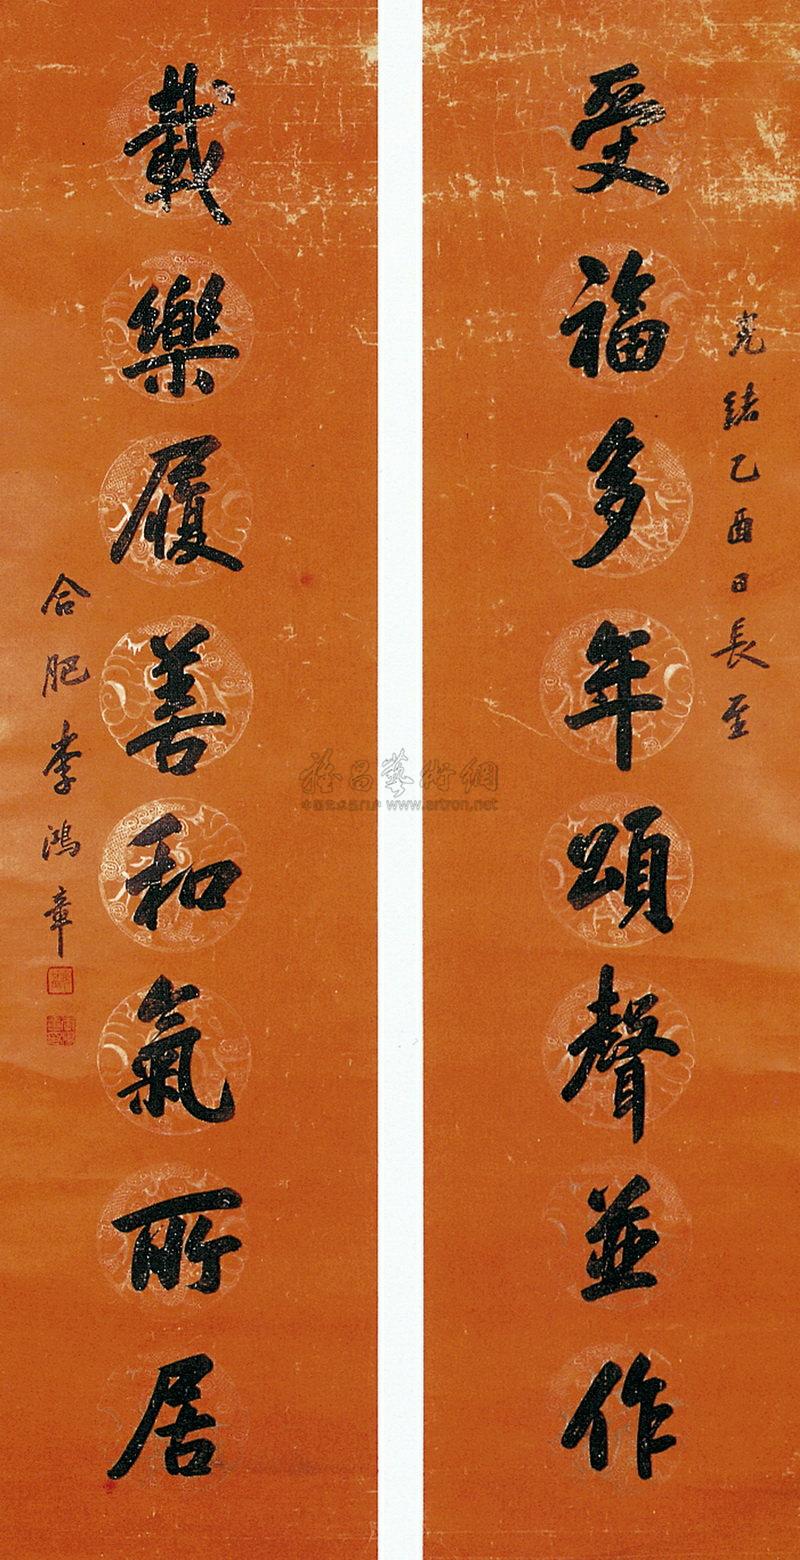 光緒乙酉日長至
受福多年頌聲並作
載樂履善和氣所居
合肥李鴻章
雅昌藝術網
www.artron.net